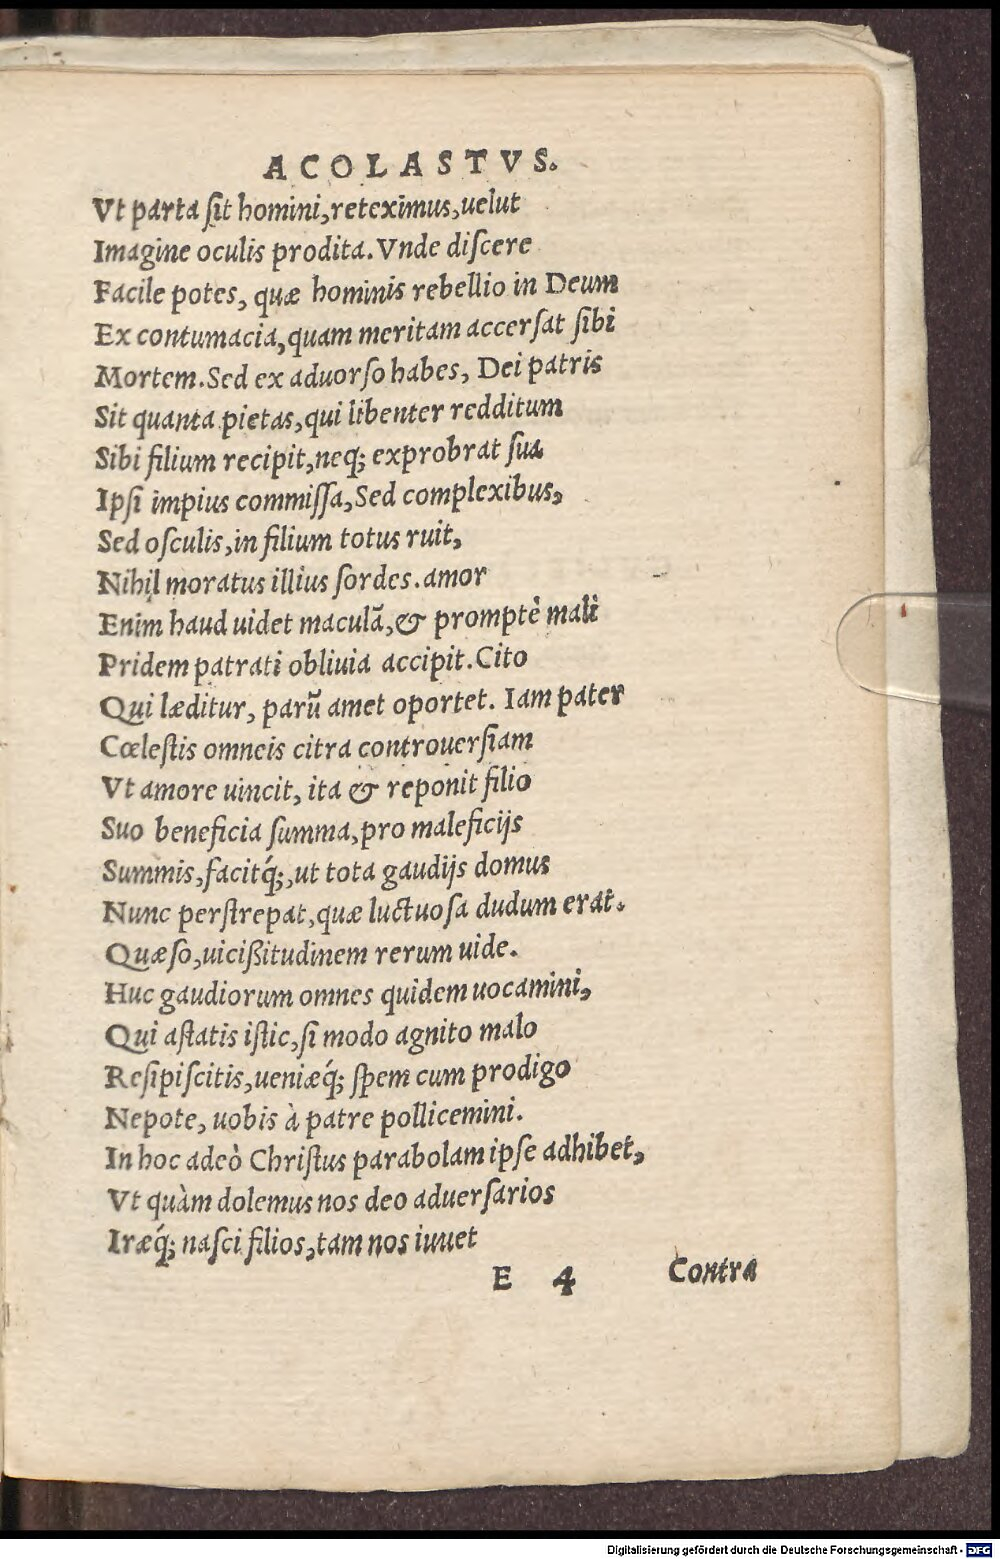 ACOLASTVS.
Vt parta ſit homini, reteximus, uelut
Imagine oculis prodita. Vnde diſcere
Facile potes, quæ hominis rebellio in Deum
Ex contumacia, quam meritam accerſat ſibi
Mortem. Sed ex aduorſo habes, Dei patris
Sit quanta pietas, qui libenter redditum
Sibi filium recipit, neq; exprobrat ſua
Ipſi impius commiſſa, Sed complexibus,
Sed oſculis, in filium totus ruit,
Nihil moratus illius ſordes. amor
Enim haud uidet maculã, & promptè mali
Pridem patrati obliuia accipit. Cito
Qui læditur, parũ amet oportet. Iam pater
Cœleſtis omneis citra controuerſiam
Vt amore uincit, ita & reponit filio
Suo beneficia ſumma, pro maleficijs
Summis, facitq́;, ut tota gaudijs domus
Nunc perſtrepat, quæ luctuoſa dudum erat.
Quæſo, uicißitudinem rerum uide.
Huc gaudiorum omnes quidem uocamini,
Qui aſtatis iſtic, ſi modo agnito malo
Reſipiſcitis, ueniæq́; ſpem cum prodigo
Nepote, uobis à patre pollicemini.
In hoc adeò Chriſtus parabolam ipſe adhibet,
Vt quàm dolemus nos deo aduerſarios
Iræq́; naſci filios, tam nos iuuet
E 4 Contra
Digitalisierung gefördert durch die Deutsche Forschungsgemeinschaft - DFG